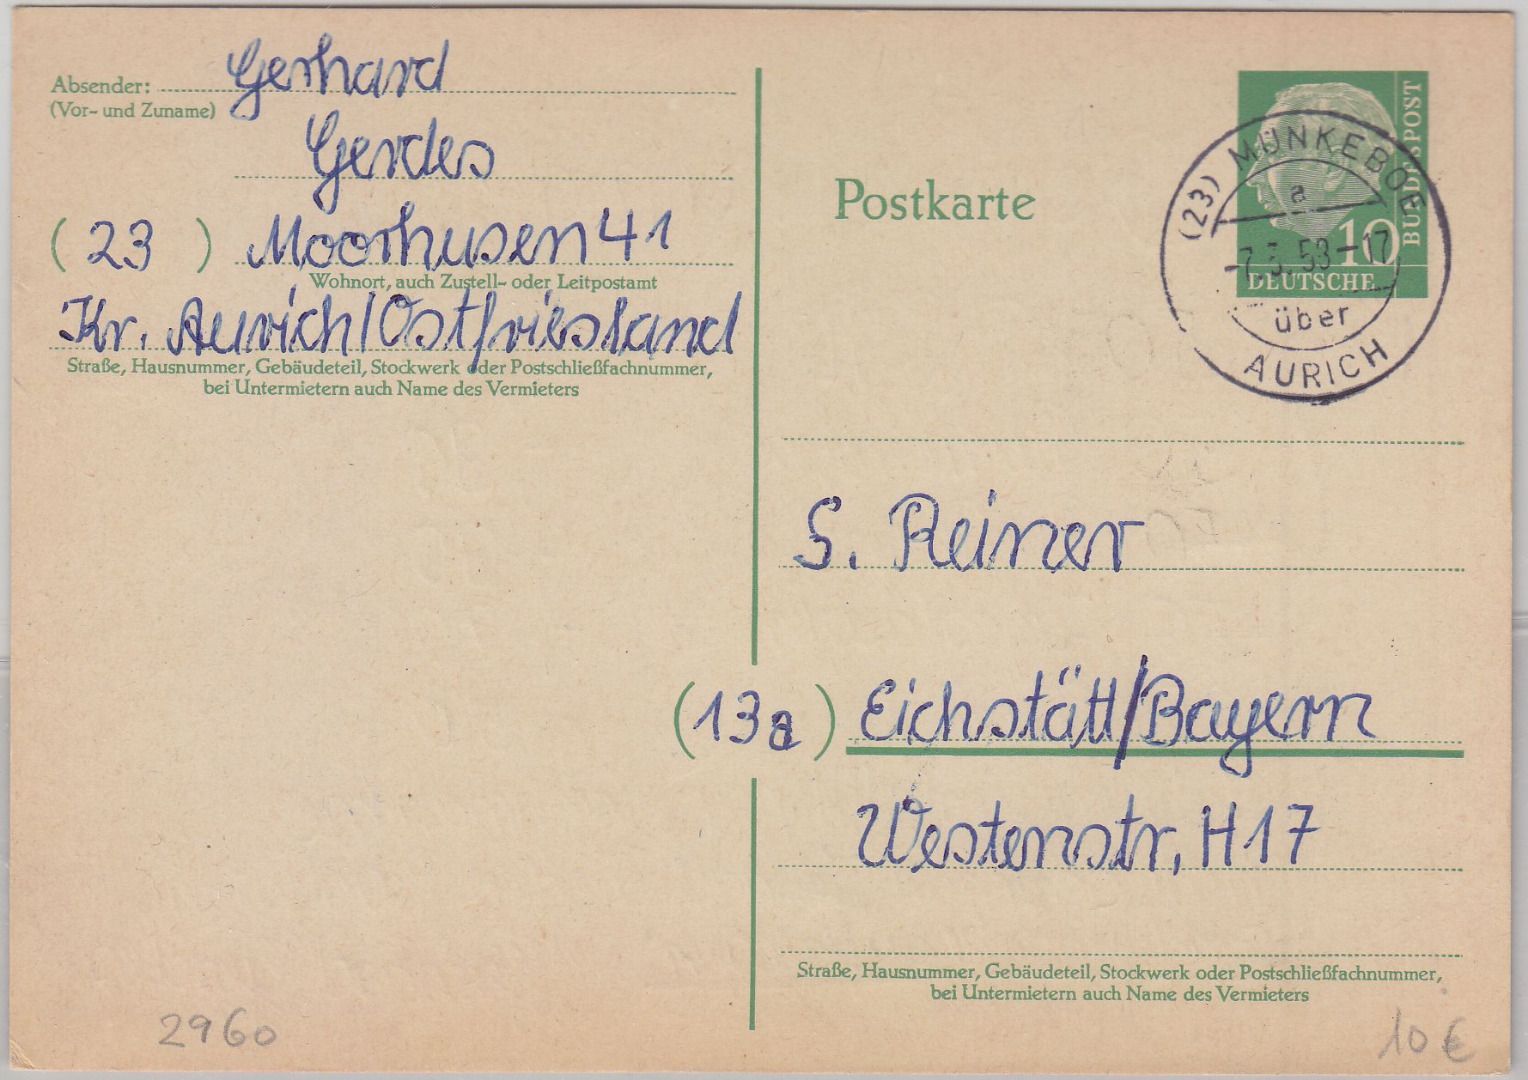 Absender: Gerhard
(Vor- und Zuname)
Gerdes
(23) Moorhusen 41
Wohnort, auch Zustell- oder Leitpostamt
Kr. Aurich/Ostfriesland
Straße, Hausnummer, Gebäudeteil, Stockwerk oder Postschließfachnummer,
bei Untermietern auch Name des Vermieters
Postkarte
10
DEUTSCHE
BUNDESPOST
(23) MÜNKEBOE
a
über
AURICH
S. Reiner
(13a) Eichstätt/Bayern
Westenstr, H17
Straße, Hausnummer, Gebäudeteil, Stockwerk oder Postschließfachnummer,
bei Untermietern auch Name des Vermieters
2960
10 €